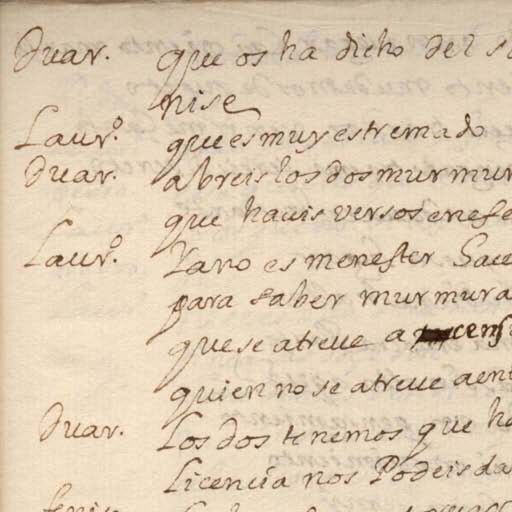 Duar. que os ha dicho del s
nise
Laur.º que es muy estremado
Duar. abreis los dos murmur
que haceis versos en efe
Laur.º Ya no es menester Sace
para saber murmura
que se atreue a cens
quien no se atreue a ent
Duar. Los dos tenemos que ha
Licencia nos Podeis da